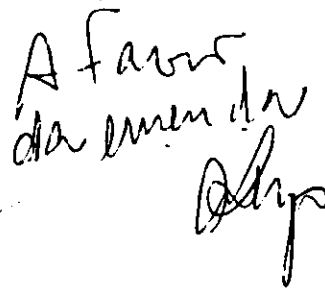 A favor
da emenda